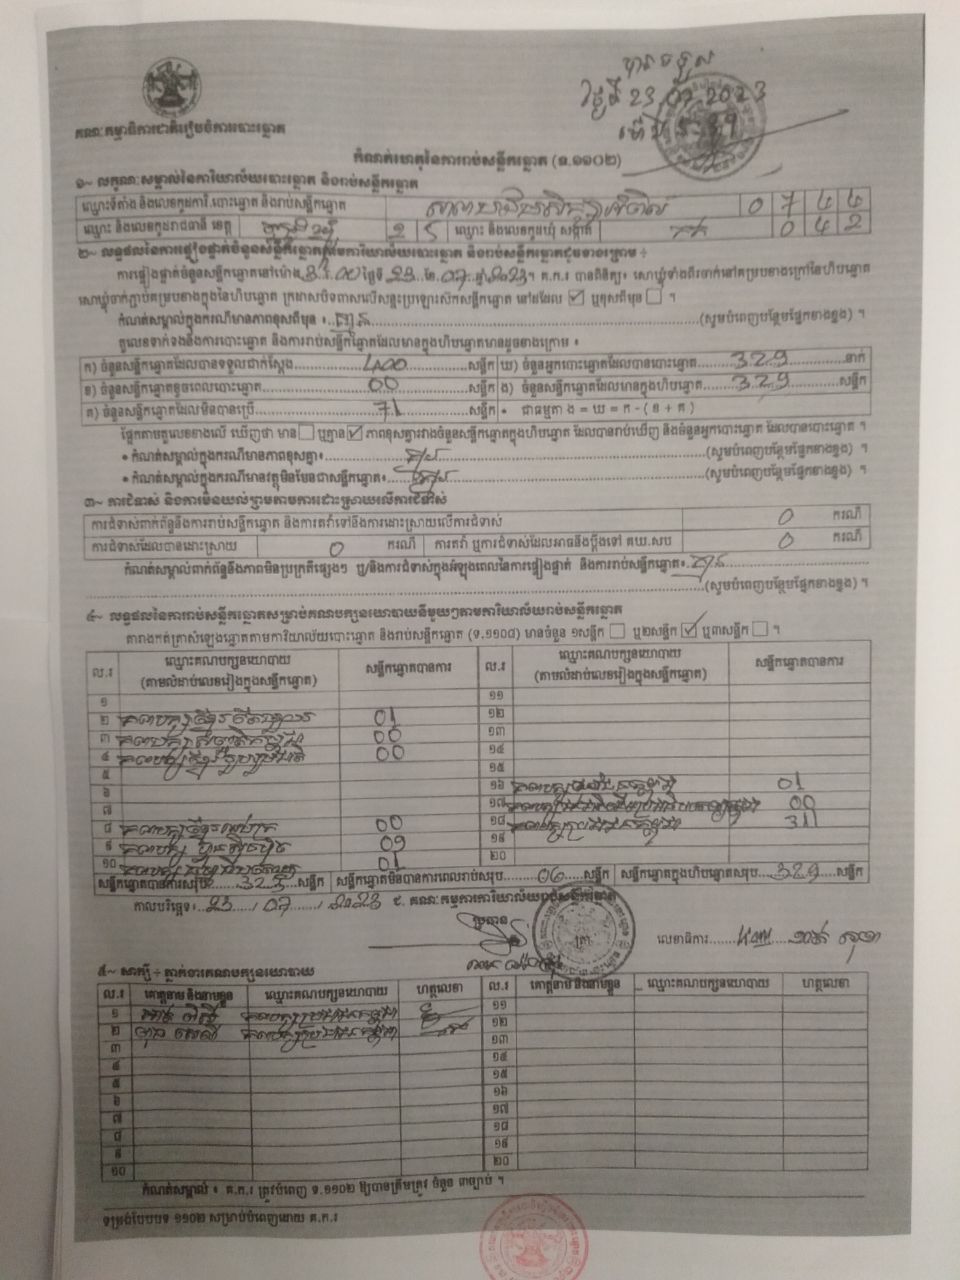 បានចម្លង
ថ្ងៃទី 23 07 2023
គណៈកម្មាធិការជាតិរៀបចំការបោះឆ្នោត
កំណត់ហេតុនៃការរាប់សន្លឹកឆ្នោត (ទ.១១០២)
១~ លក្ខណៈសម្គាល់នៃការិយាល័យបោះឆ្នោត និងរាប់សន្លឹកឆ្នោត
ឈ្មោះទីតាំង និងលេខកូដការិ.បោះឆ្នោត និងរាប់សន្លឹកឆ្នោត 0 7 4 4
ឈ្មោះ និងលេខកូដរាជធានី ខេត្ត 2 5 ឈ្មោះ និងលេខកូដឃុំ សង្កាត់ 0 4 2
២~ លទ្ធផលនៃការផ្ទៀងផ្ទាត់ចំនួនសន្លឹកឆ្នោតក្នុងការិយាល័យបោះឆ្នោត និងរាប់សន្លឹកឆ្នោតដូចខាងក្រោម ÷
ការផ្ទៀងផ្ទាត់ចំនួនសន្លឹកឆ្នោតនៅម៉ោង 3:00 ថ្ងៃទី 23 ខែ 07 ឆ្នាំ 2023។ គ.ក.រ បានពិនិត្យ៖ សោឃ្លុំទាំងពីរចាក់នៅគម្របខាងក្រៅនៃហិបឆ្នោត
សោឃ្លុំចាក់ភ្ជាប់គម្របខាងក្នុងនៃហិបឆ្នោត ក្រដាសបិទពាសលើសន្ទះប្រឡោះស៊កសន្លឹកឆ្នោត នៅដដែល ☑ ឬខុសពីមុន ☐ ។
កំណត់សម្គាល់ក្នុងករណីមានភាពខុសពីមុន ៖ គ្មាន (សូមបំពេញបន្ថែមផ្នែកខាងខ្នង) ។
តួលេខទាក់ទងនឹងការបោះឆ្នោត និងការរាប់សន្លឹកឆ្នោតដែលមានក្នុងហិបឆ្នោតមានដូចខាងក្រោម ៖
ក) ចំនួនសន្លឹកឆ្នោតដែលបានទទួលជាក់ស្ដែង 400 សន្លឹក ឃ) ចំនួនអ្នកបោះឆ្នោតដែលបានបោះឆ្នោត 329 នាក់
ខ) ចំនួនសន្លឹកឆ្នោតខូចពេលបោះឆ្នោត 00 សន្លឹក ង) ចំនួនសន្លឹកឆ្នោតដែលមានក្នុងហិបឆ្នោត 329 សន្លឹក
គ) ចំនួនសន្លឹកឆ្នោតដែលមិនបានប្រើ 71 សន្លឹក • ជាធម្មតា ង = ឃ = ក - ( ខ + គ )
ផ្អែកតាមតួលេខខាងលើ ឃើញថា មាន ☐ ឬគ្មាន ☑ ភាពខុសគ្នារវាងចំនួនសន្លឹកឆ្នោតក្នុងហិបឆ្នោត ដែលបានរាប់ឃើញ និងចំនួនអ្នកបោះឆ្នោត ដែលបានបោះឆ្នោត ។
• កំណត់សម្គាល់ក្នុងករណីមានភាពខុសគ្នា៖ គ្មាន (សូមបំពេញបន្ថែមផ្នែកខាងខ្នង) ។
• កំណត់សម្គាល់ក្នុងករណីមានវត្ថុមិនមែនជាសន្លឹកឆ្នោត៖ គ្មាន (សូមបំពេញបន្ថែមផ្នែកខាងខ្នង) ។
៣~ ការជំទាស់ និងការមិនយល់ព្រមតាមការដោះស្រាយលើការជំទាស់
ការជំទាស់ពាក់ព័ន្ធនឹងការរាប់សន្លឹកឆ្នោត និងការតវ៉ាទៅនឹងការដោះស្រាយលើការជំទាស់ 0 ករណី
ការជំទាស់ដែលបានដោះស្រាយ 0 ករណី ការតវ៉ា ឬការជំទាស់ដែលអាចនឹងប្ដឹងទៅ គឃ.សប 0 ករណី
កំណត់សម្គាល់ពាក់ព័ន្ធនឹងភាពមិនប្រក្រតីផ្សេងៗ ឬ/និងការជំទាស់ក្នុងអំឡុងពេលនៃការផ្ទៀងផ្ទាត់ និងការរាប់សន្លឹកឆ្នោត៖ គ្មាន
(សូមបំពេញបន្ថែមផ្នែកខាងខ្នង) ។
៤~ លទ្ធផលនៃការរាប់សន្លឹកឆ្នោតសម្រាប់គណបក្សនយោបាយនីមួយៗតាមការិយាល័យរាប់សន្លឹកឆ្នោត
តារាងកត់ត្រាសំឡេងឆ្នោតតាមការិយាល័យបោះឆ្នោត និងរាប់សន្លឹកឆ្នោត (ទ.១១០៨) មានចំនួន ១សន្លឹក ☐ ឬ២សន្លឹក ☑ ឬ៣សន្លឹក ☐ ។
ល.រ ឈ្មោះគណបក្សនយោបាយ សន្លឹកឆ្នោតបានការ ល.រ ឈ្មោះគណបក្សនយោបាយ សន្លឹកឆ្នោតបានការ
(តាមលំដាប់លេខរៀងក្នុងសន្លឹកឆ្នោត) (តាមលំដាប់លេខរៀងក្នុងសន្លឹកឆ្នោត)
១ ១១
២ 01 ១២
៣ 00 ១៣
៤ 00 ១៤
៥ ១៥
៦ ១៦ 01
៧ ១៧ 00
៨ 00 ១៨ 311
៩ 09 ១៩
១០ 01 ២០
សន្លឹកឆ្នោតបានការសរុប 323 សន្លឹក សន្លឹកឆ្នោតមិនបានការពេលរាប់សរុប 06 សន្លឹក សន្លឹកឆ្នោតក្នុងហិបឆ្នោតសរុប 329 សន្លឹក
កាលបរិច្ឆេទ៖ 23 / 07 / 2023 ជ. គណៈកម្មការការិយាល័យរាប់សន្លឹកឆ្នោត
ប្រធាន
លេខាធិការ
៥~ សាក្សី ÷ ភ្នាក់ងារគណបក្សនយោបាយ
ល.រ គោត្តនាម និងនាមខ្លួន ឈ្មោះគណបក្សនយោបាយ ហត្ថលេខា ល.រ គោត្តនាម និងនាមខ្លួន ឈ្មោះគណបក្សនយោបាយ ហត្ថលេខា
១ គណបក្សប្រជាជនកម្ពុជា ១១
២ គណបក្សប្រជាជនកម្ពុជា ១២
៣ ១៣
៤ ១៤
៥ ១៥
៦ ១៦
៧ ១៧
៨ ១៨
៩ ១៩
១០ ២០
កំណត់សម្គាល់ ៖ គ.ក.រ ត្រូវបំពេញ ទ.១១០២ ឱ្យបានត្រឹមត្រូវ ចំនួន ៣ច្បាប់ ។
ទម្រង់បែបបទ ១១០២ សម្រាប់បំពេញដោយ គ.ក.រ